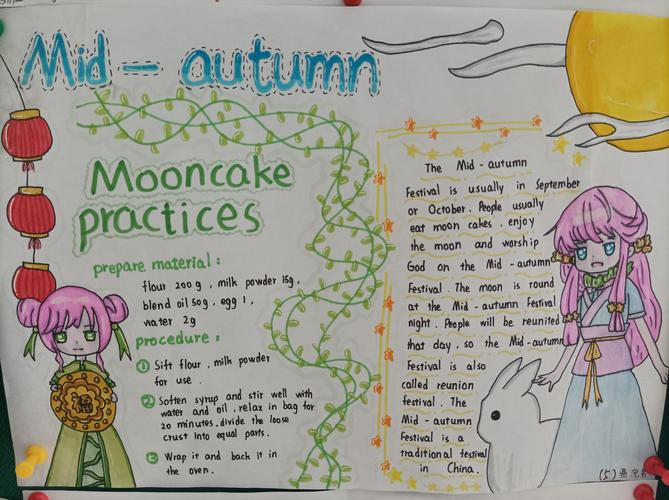 Mid - autumn
Mooncake
practices
prepare material :
flour 200 g , milk powder 15g ,
blend oil 50g , egg 1 ,
water 2g
procedure :
① Sift flour , milk powder
for use .
② Soften syrup and stir well with
water and oil , relax in bag for
20 minutes . divide the loose
crust into equal parts .
③ Wrap it and back it in
the oven .
The Mid - autumn
Festival is usually in September
or October . People usually
eat moon cakes , enjoy
the moon and worship
God on the Mid - autumn
Festival . The moon is round
at the Mid - autumn Festival
night . People will be reunited
that day , so the Mid - autumn
Festival is also
called reunion
festival . The
Mid - autumn
Festival is a
traditional festival
in China .
(5)